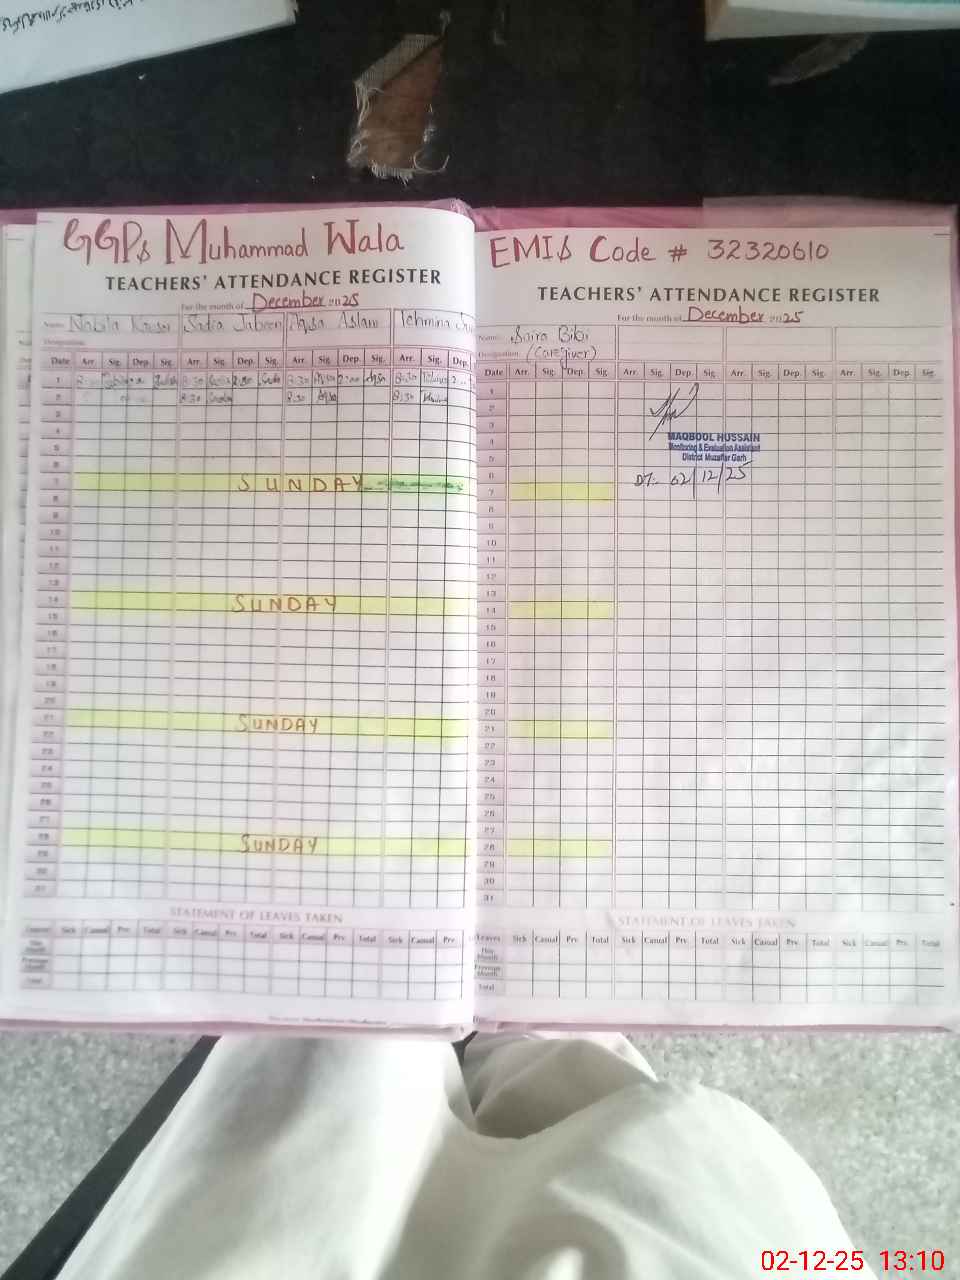 GGPS Muhammad Wala
TEACHERS' ATTENDANCE REGISTER
For the month of December 2025
Name Nabila Kausar Sadia Jabeen Aqsa Aslam Tehmina
Designation
Date Arr. Sig. Dep. Sig. Arr. Sig. Dep. Sig. Arr. Sig. Dep. Sig. Arr. Sig. Dep.
1 8:30 Sadia 2:00 Sadia 8:30 Aqsa 2:00 Aqsa 8:30
2 8:30 Sadia 8:30 Aqsa 8:30
3
4
5
6
7 SUNDAY
8
9
10
11
12
13
14 SUNDAY
15
16
17
18
19
20
21 SUNDAY
22
23
24
25
26
27
28 SUNDAY
29
30
31
STATEMENT OF LEAVES TAKEN
Leaves Sick Casual Prv. Total Sick Casual Prv. Total Sick Casual Prv. Total Sick Casual Prv.
This Month
Previous Month
Total
EMIS Code # 32320610
TEACHERS' ATTENDANCE REGISTER
For the month of December 2025
Name Saira Bibi
Designation (Caregiver)
Date Arr. Sig. Dep. Sig. Arr. Sig. Dep. Sig. Arr. Sig. Dep. Sig. Arr. Sig. Dep. Sig.
1
2
3
4
MAQBOOL HUSSAIN
Monitoring & Evaluation Assistant
5
District Muzaffar Garh
6
DT:- 02/12/25
7
8
9
10
11
12
13
14
15
16
17
18
19
20
21
22
23
24
25
26
27
28
29
30
31
STATEMENT OF LEAVES TAKEN
Leaves Sick Casual Prv. Total Sick Casual Prv. Total Sick Casual Prv. Total Sick Casual Prv. Total
This Month
Previous Month
Total
02-12-25 13:10